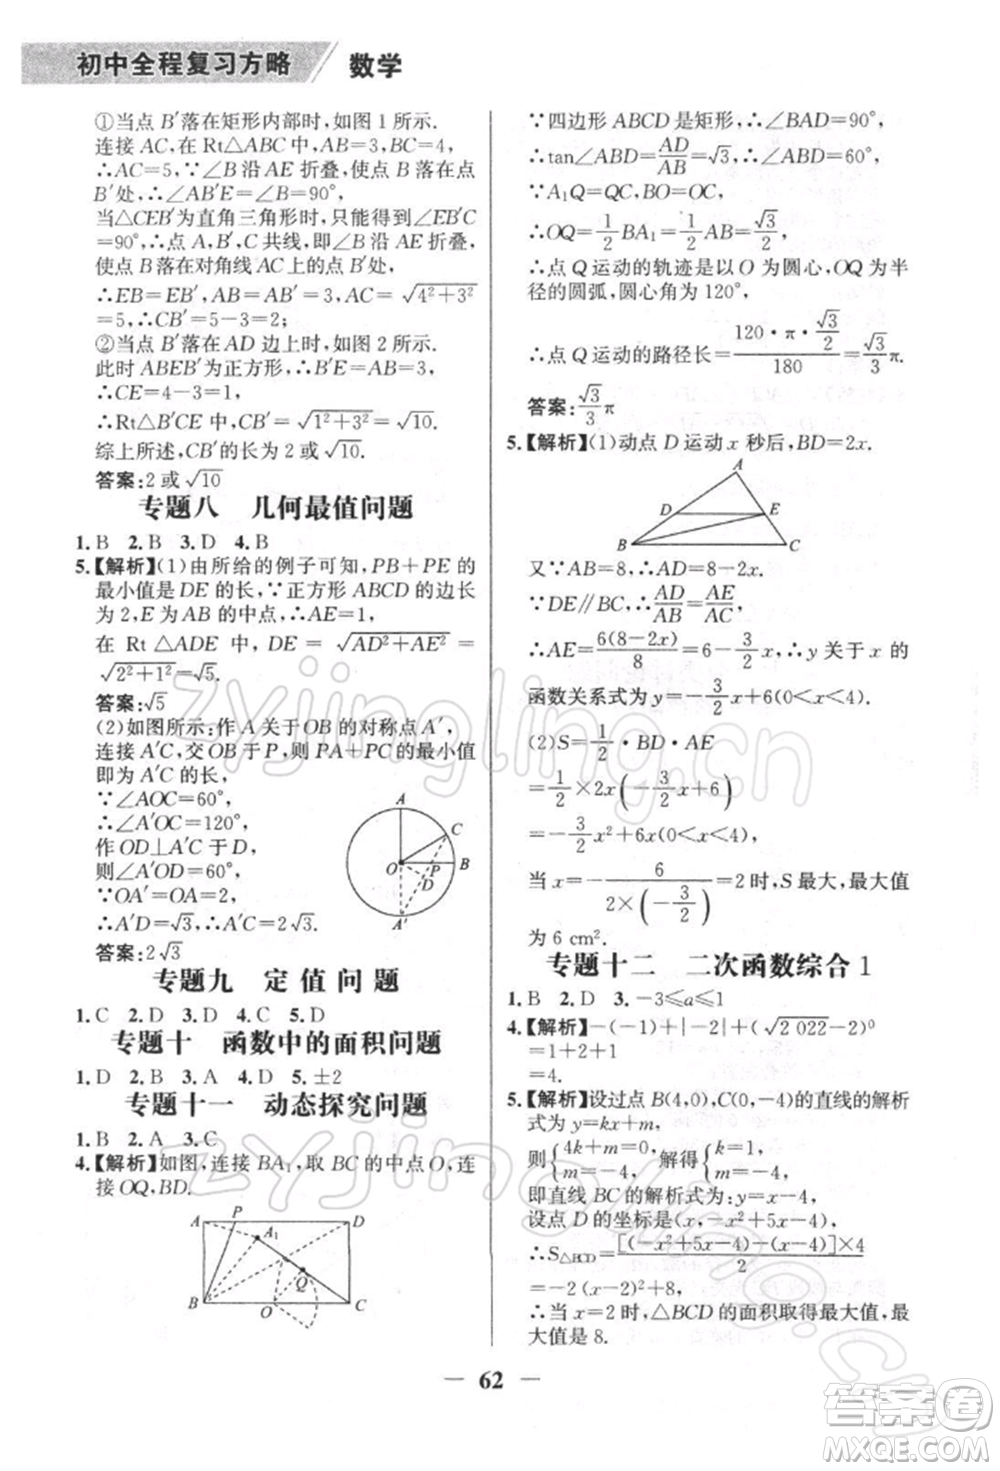 初中全程复习方略 数学
①当点 B′落在矩形内部时,如图 1 所示.
连接 AC,在 Rt△ABC 中,AB=3,BC=4,
∴AC=5,∵∠B 沿 AE 折叠,使点 B 落在点
B′处,∴∠AB′E=∠B=90°,
当△CEB′为直角三角形时,只能得到∠EB′C
=90°,∴点 A,B′,C 共线,即∠B 沿 AE 折叠,
使点 B 落在对角线 AC 上的点 B′处,
∴EB=EB′,AB=AB′=3,AC=√(4²+3²)
=5,∴CB′=5-3=2;
②当点 B′落在 AD 边上时,如图 2 所示.
此时 ABEB′为正方形,∴BE=AB=3,
∴CE=4-3=1,
∴Rt△B′CE 中,CB′=√(1²+3²)=√10.
综上所述,CB′的长为 2 或√10.
答案:2 或√10
专题八 几何最值问题
1. B 2. B 3. D 4. B
5.【解析】(1)由所给的例子可知,PB+PE 的
最小值是 DE 的长,∵正方形 ABCD 的边长
为 2,E 为 AB 的中点,∴AE=1,
在 Rt △ADE 中,DE=√(AD²+AE²)=
√(2²+1²)=√5.
答案:√5
(2)如图所示:作 A 关于 OB 的对称点 A′,
连接 A′C,交 OB 于 P,则 PA+PC 的最小值
即为 A′C 的长,
∵∠AOC=60°,
∴∠A′OC=120°,
作 OD⊥A′C 于 D,
则∠A′OD=60°,
∵OA′=OA=2,
∴A′D=√3,∴A′C=2√3.
A C O P B D A′
答案:2√3
专题九 定值问题
1. C 2. D 3. D 4. C 5. D
专题十 函数中的面积问题
1. D 2. B 3. A 4. D 5. ±2
专题十一 动态探究问题
1. B 2. A 3. C
4.【解析】如图,连接 BA₁,取 BC 的中点 O,连
接 OQ,BD.
A P D A₁ Q B O C
∵四边形 ABCD 是矩形,∴∠BAD=90°,
∴tan∠ABD=AD/AB=√3,∴∠ABD=60°,
∵A₁Q=QC,BO=OC,
∴OQ=1/2 BA₁=1/2 AB=√3/2,
∴点 Q 运动的轨迹是以 O 为圆心,OQ 为半
径的圆弧,圆心角为 120°,
∴点 Q 运动的路径长=(120·π·√3/2)/180=√3/3 π.
答案:√3/3 π
5.【解析】(1)动点 D 运动 x 秒后,BD=2x.
A D E B C
又∵AB=8,∴AD=8-2x.
∵DE∥BC,∴AD/AB=AE/AC,
∴AE=6(8-2x)/8=6-3/2 x,∴y 关于 x 的
函数关系式为 y=-3/2 x+6(0<x<4).
(2)S=1/2·BD·AE
=1/2×2x(-3/2 x+6)
=-3/2 x²+6x(0<x<4),
当 x=-6/(2×(-3/2))=2 时,S 最大,最大值
为 6 cm².
专题十二 二次函数综合 1
1. B 2. D 3. -3≤a≤1
4.【解析】-(-1)+|-2|+(√2 022-2)⁰
=1+2+1
=4.
5.【解析】设过点 B(4,0),C(0,-4)的直线的解析
式为 y=kx+m,
则{4k+m=0, m=-4, 解得{k=1, m=-4,
即直线 BC 的解析式为:y=x-4,
设点 D 的坐标是(x,-x²+5x-4),
∴S△BCD=[(-x²+5x-4)-(x-4)]×4/2
=-2(x-2)²+8,
∴当 x=2 时,△BCD 的面积取得最大值,最
大值是 8.
— 62 —
zyjingling.cn
zyjingling.cn
答案圈
MXQE.COM